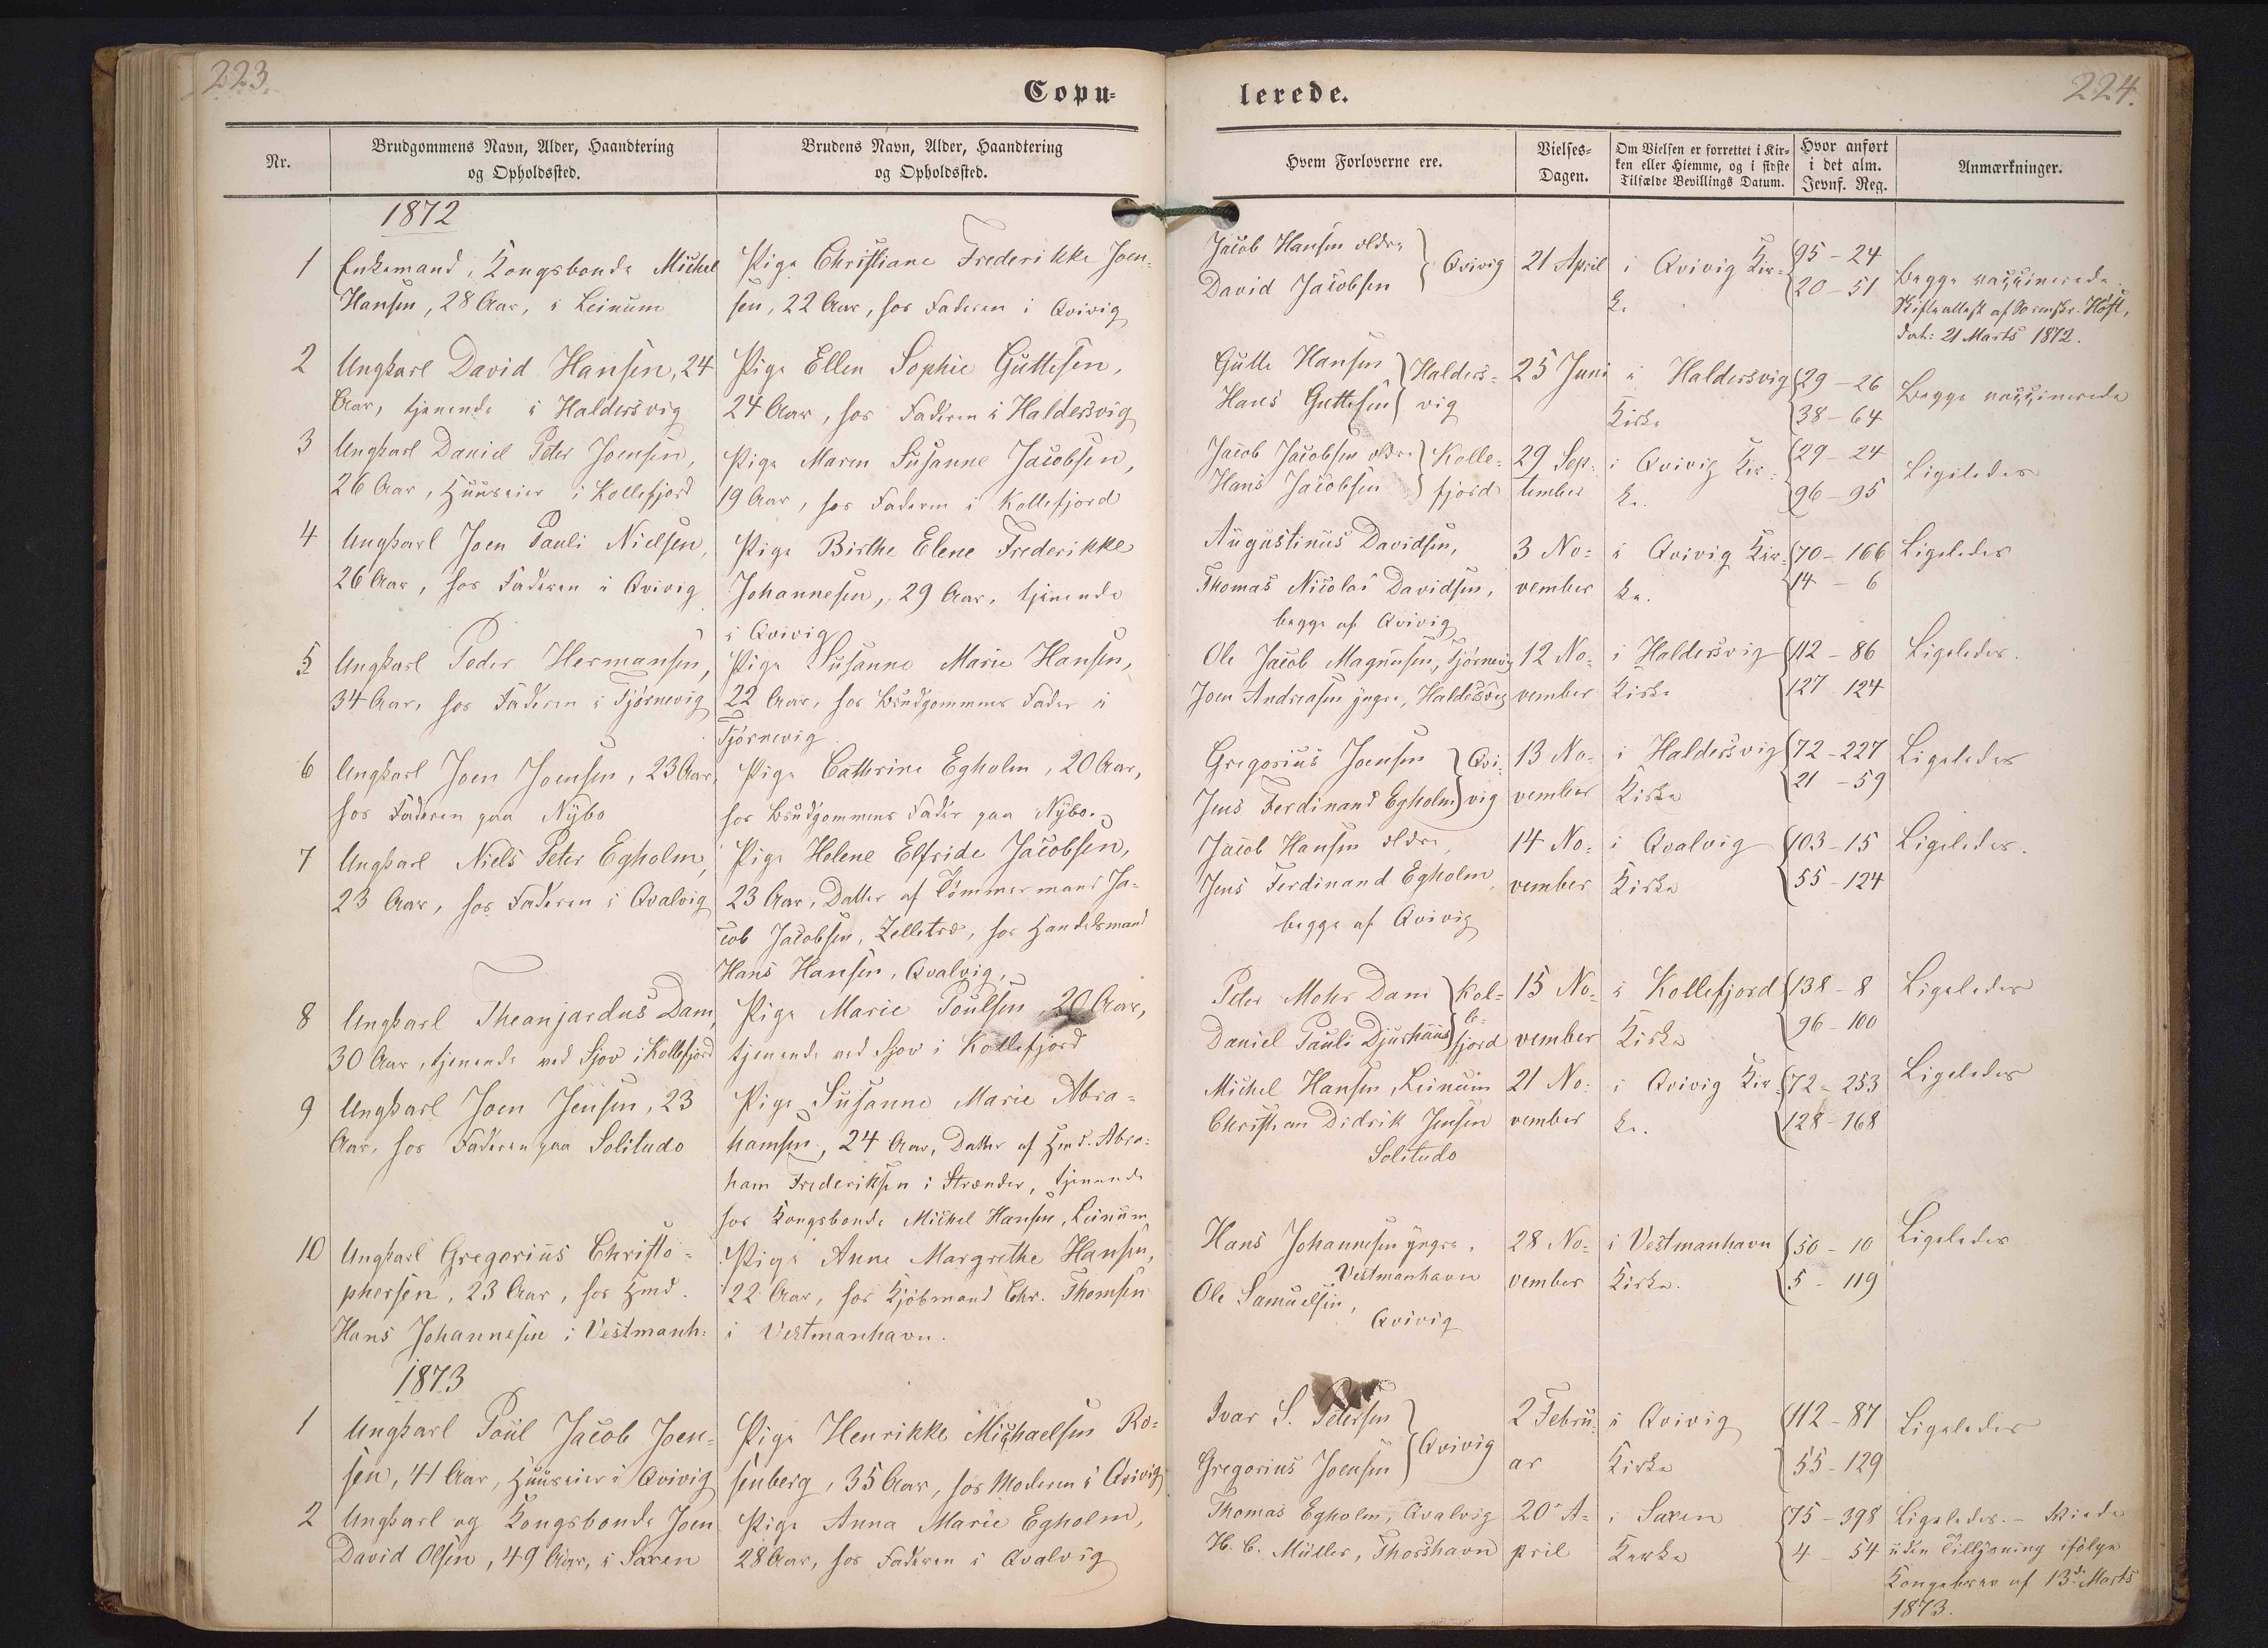 223.
Copu-
Nr.
Brudgommens Navn, Alder, Haandtering
og Opholdssted.
Brudens Navn, Alder, Haandtering
og Opholdssted.
1872
1
Enkemand, Kongsbonde Michel
Hansen, 28 Aar, i Leinum
Pige Christiane Frederikke Joen-
sen, 22 Aar, hos Faderen i Qvivig
2
Ungkarl David Hansen, 24
Aar, tjenende i Haldersvig
Pige Ellen Sophie Guttesen,
24 Aar, hos Faderen i Haldersvig
3
Ungkarl Daniel Peter Joensen,
26 Aar, Huuseier i Kollefjord
Pige Maren Susanne Jacobsen,
19 Aar, hos Faderen i Kollefjord
4
Ungkarl Joen Pauli Nielsen,
26 Aar, hos Faderen i Qvivig
Pige Birthe Elene Frederikke
Johannesen, 29 Aar, tjenende
i Qvivig
5
Ungkarl Peder Hermansen,
34 Aar, hos Faderen i Tjørnevig
Pige Susanne Marie Hansen,
22 Aar, hos Brudgommens Fader i
Tjørnevig
6
Ungkarl Joen Joensen, 23 Aar,
hos Faderen paa Nybo
Pige Cathrine Egholm, 20 Aar,
hos Brudgommens Fader paa Nybo.
7
Ungkarl Niels Peter Egholm,
23 Aar, hos Faderen i Qvalvig
Pige Helene Elfride Jacobsen,
23 Aar, Datter af Tømmermand Ja-
cob Jacobsen, Zelletræ, hos Handelsmand
Hans Hansen, Qvalvig,
8
Ungkarl Theanjardus Dam,
30 Aar, tjenende ved Sjov i Kollefjord
Pige Marie Poulsen, 20 Aar,
tjenende ved Sjov i Kollefjord
9
Ungkarl Joen Jensen, 23
Aar, hos Faderen paa Solitudo
Pige Susanne Marie Abra-
hamsen, 24 Aar, Datter af Hmd. Abra-
ham Frederiksen i Strænder, tjenende
hos Kongsbonde Michel Hansen, Leinum
10
Ungkarl Gregorius Christo-
phersen, 23 Aar, hos Hmd.
Hans Johannesen i Vestmanh:
Pige Anne Margrethe Hansen,
22 Aar, hos Kjøbmand Chr. Thomsen
i Vestmanhavn.
1873
1
Ungkarl Poul Jacob Joen-
sen, 41 Aar, Huuseier i Qvivig
Pige Henrikke Michaelsen Ro-
senberg, 35 Aar, hos Moderen i Qvivig
2
Ungkarl og Kongsbonde Joen
David Olsen, 49 Aar, i Saxen
Pige Anna Marie Egholm,
28 Aar, hos Faderen i Qvalvig
lerede.
224.
Hvem Forloverne ere.
Vielses-
Dagen.
Om Vielsen er forrettet i Kir-
ken eller Hiemme, og i sidste
Tilfælde Bevillings Datum.
Hvor anført
i det alm.
Jevnf. Reg.
Anmærkninger.
Jacob Hansen ældre
David Jacobsen
Qvivig
21 April
i Qvivig Kir-
ke
95 - 24
20 - 51
Begge vaccinerede.
Skifteattest af Sorenskr. Høst,
dat: 21 Marts 1872.
Gutte Hansen
Hans Guttesen
Halders-
vig
25 Juni
i Haldersvig
Kirke
29 - 26
38 - 64
Begge vaccinerede
Jacob Jacobsen ældre
Hans Jacobsen
Kolle-
fjord
29 Sep-
tember
i Qvivig Kir-
ke.
29 - 24
96 - 95
Ligeledes
Augustinus Davidsen,
Thomas Nicolai Davidsen,
begge af Qvivig
3 No-
vember
i Qvivig Kir-
ke.
70 - 166
14 - 6
Ligeledes
Ole Jacob Magnusen, Tjørnevig
Joen Andreasen yngre, Haldersvig
12 No-
vember
i Haldersvig
Kirke
112 - 86
127 - 124
Ligeledes.
Gregorius Joensen
Jens Ferdinand Egholm
Qvi-
vig
13 No-
vember
i Haldersvig
Kirke
72 - 227
21 - 59
Ligeledes
Jacob Hansen ældre,
Jens Ferdinand Egholm,
begge af Qvivig
14 No-
vember
i Qvalvig
Kirke
103 - 15
55 - 124
Ligeledes.
Peter Mohr Dam
Daniel Pauli Djurhuus
Kol-
le-
fjord
15 No-
vember
i Kollefjord
Kirke
138 - 8
96 - 100
Ligeledes
Michel Hansen, Leinum
Christian Didrik Jensen
Solitudo
21 No-
vember
i Qvivig Kir-
ke.
72 - 253
128 - 168
Ligeledes
Hans Johannesen yngre,
Vestmanhavn
Ole Samuelsen,
Qvivig
28 No-
vember
i Vestmanhavn
Kirke.
50 - 10
5 - 119
Ligeledes
Ivar S. Petersen
Gregorius Joensen
Qvivig
2 Febru-
ar
i Qvivig
Kirke
112 - 87
55 - 129
Ligeledes
Thomas Egholm, Qvalvig
H. C. Müller, Thorshavn
20 A-
pril
i Saxen
Kirke
75 - 398
4 - 54
Ligeledes. - Viede
uden Tillysning ifølge
Kongebrev af 13de Marts
1873.